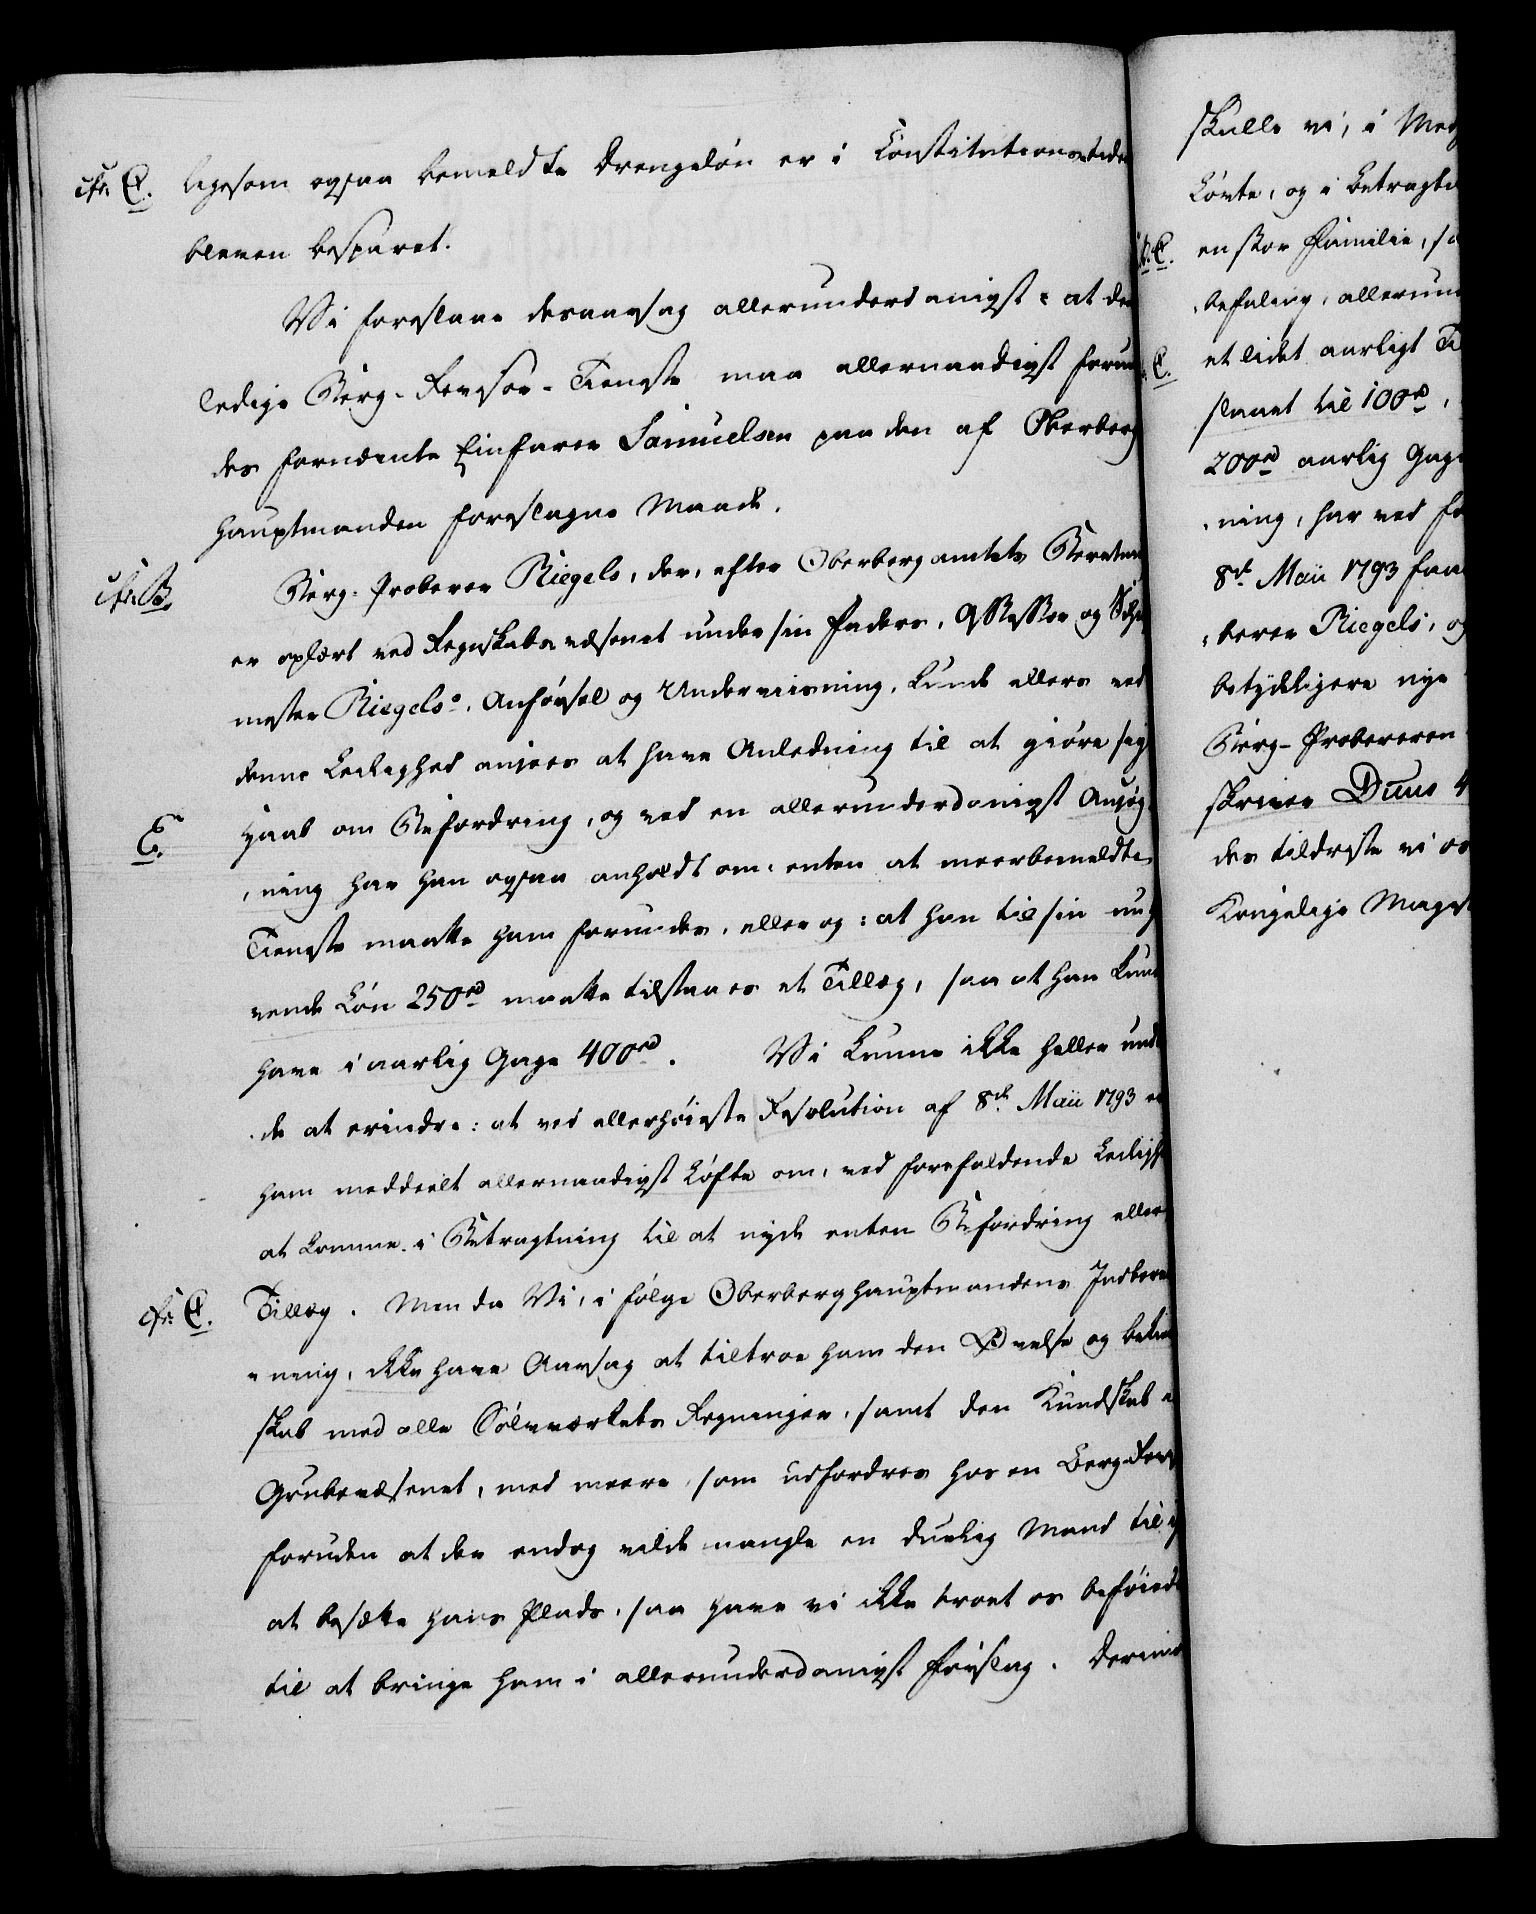 cfr. C. ligesom ogsaa bemeldte Drengeløn er i Constitutionstiden
bleven besparet.
Vi foreslaae desaarsag allerunderdanigst: at den
ledige Berg-Revisor-Tieneste maa allernaadigst forun
des fornævnte Einfarer Samuelsen paa den af Oberberg
hauptmanden foreslagne Maade.
cfr. B. Berg-Proberer Riegels, der, efter Oberbergamtets Beretn
er oplært ved Regnskabsvæsenet under sin Faders, Assessor og
mester Riegels's, Anførsel og Underviisning, kunde ellers ved
denne Ledighed ansees at have Anledning til at giøre sig
E. Haab om Befordring, og ved en allerunderdanigst Ansøg
ning har han ogsaa anholdt om: enten at meerbemeldte
Tieneste maatte ham forundes, eller og: at han til sin nu
vende Løn 250rd maatte tilstaaes et Tillæg, saa at han kun
have i aarlig Gage 400rd. Vi kunne ikke heller und
de at erindre: at ved allerhøieste Resolution af 8de Maii 1793 er
ham meddeelt allernaadigst Løfte om, ved forefaldende Ledigh
at komme i Betragtning til at nyde enten Befordring eller
cfr. C. Tillæg. Men da Vi, i følge Oberberghauptmandens Indberet
ning, ikke have Aarsag at tiltroe ham den Øvelse og bekien
skab med alle Sølvverkets Regninger, samt den Kundskab
Grubevæsenet, med meere som udfordres hos en Berg-Revis
foruden at der endog vilde mangle en duelig Mand til
at besætte hans Plads, saa have vi ikke troet os beføiede
til at bringe ham i allerunderdanigst Forslag. Derim
skulle vi, i Med
Løvte, og i Betragtn
C. en stor Familie, sa
befaling, allerun
C. et lidet aarligt Ti
slaaet til 100rd,
200rd aarlig Gage
ning, har ved fo
8de Maii 1793 faa
berer Riegels, og
betydeligere nye
Berg-Probereren
skriver Duus 4
des tildriste vi os
Kongelige Majest